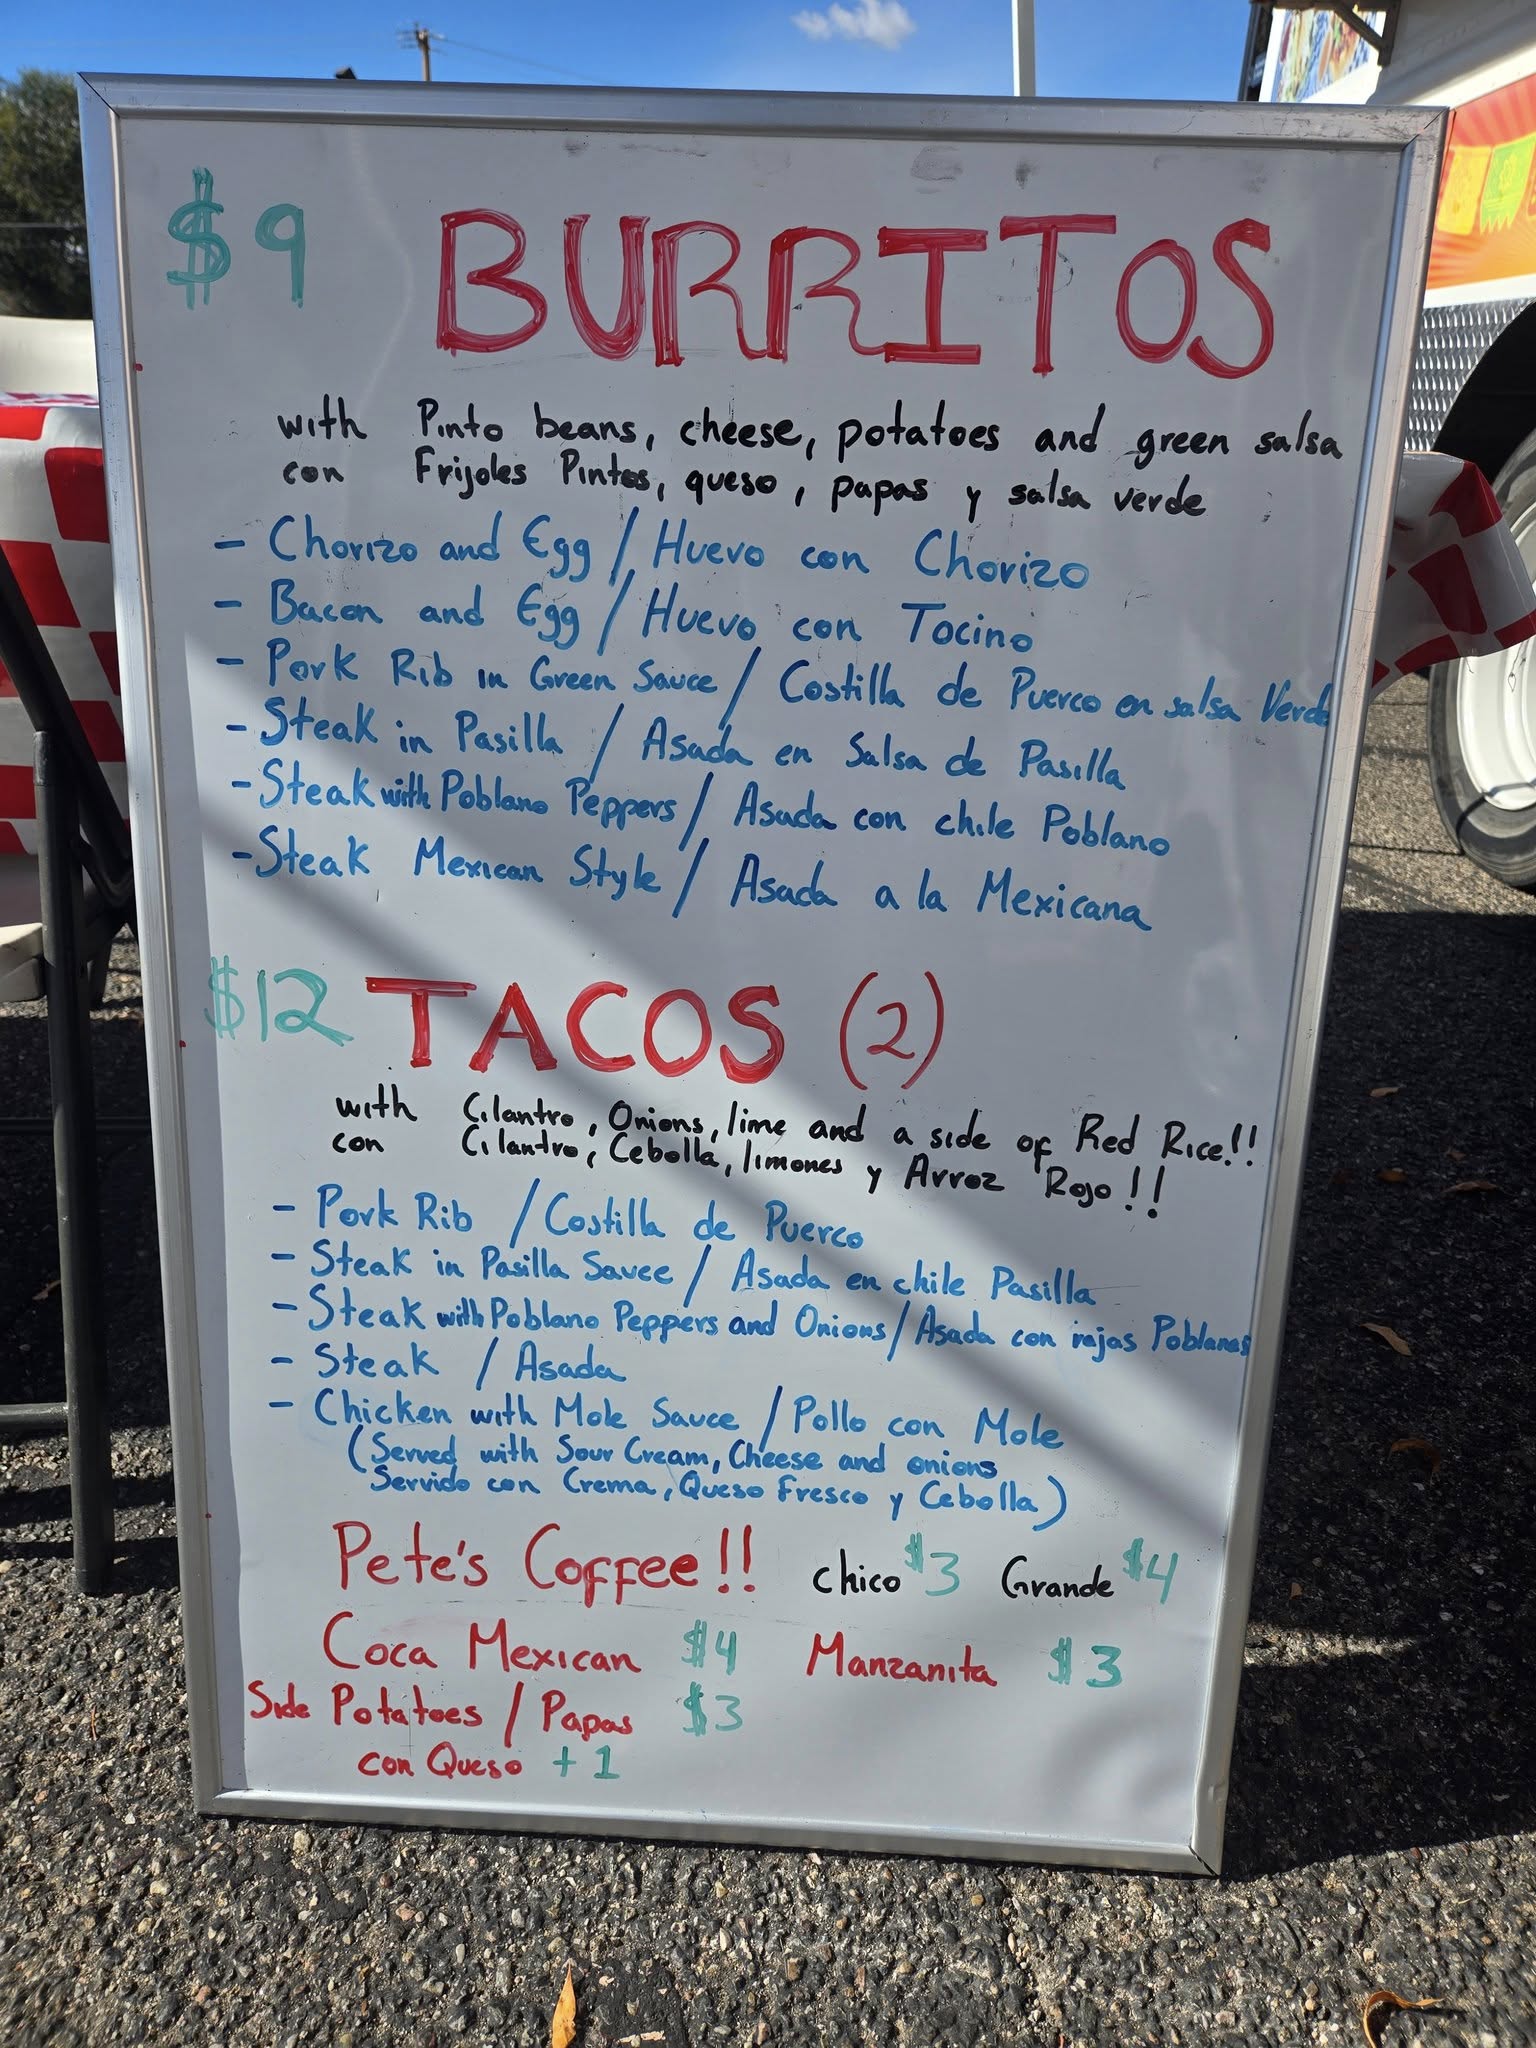 $9 BURRITOS
with Pinto beans, cheese, potatoes and green salsa
con Frijoles Pintos, queso, papas y salsa verde
- Chorizo and Egg / Huevo con Chorizo
- Bacon and Egg / Huevo con Tocino
- Pork Rib in Green Sauce / Costilla de Puerco en salsa Verde
- Steak in Pasilla / Asada en Salsa de Pasilla
- Steak with Poblano Peppers / Asada con chile Poblano
- Steak Mexican Style / Asada a la Mexicana
$12 TACOS (2)
with Cilantro, Onions, lime and a side of Red Rice!!
con Cilantro, Cebolla, limones y Arroz Rojo!!
- Pork Rib / Costilla de Puerco
- Steak in Pasilla Sauce / Asada en chile Pasilla
- Steak with Poblano Peppers and Onions / Asada con rajas Poblanas
- Steak / Asada
- Chicken with Mole Sauce / Pollo con Mole
(Served with Sour Cream, Cheese and onions
Servido con Crema, Queso Fresco y Cebolla)
Pete's Coffee!! chico $3 Grande $4
Coca Mexican $4 Manzanita $3
Side Potatoes / Papas $3
con Queso +1